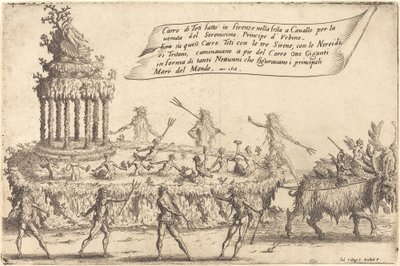 Carro di Teti fatto in Firenze nella festa a Cavallo per la
venuta del Serenissimo Principe d'Urbino.
Era su questo Carro Teti con le tre Sirene, con le Nereidi
et Tritoni, caminavano a pie del Carro Otto Giganti
in forma di tanti Nettunni che figuravano i principali
Mari del Mondo.